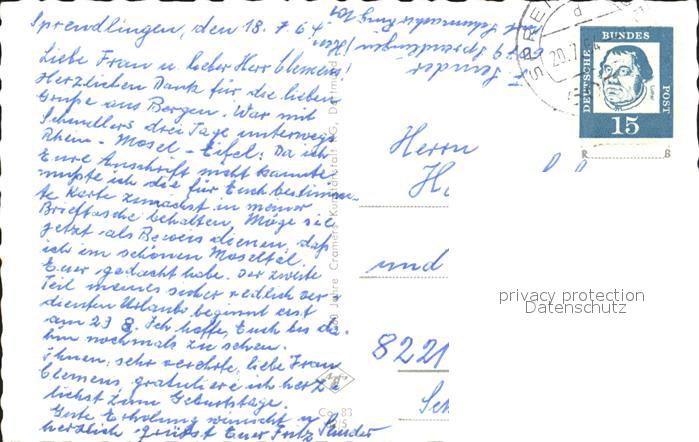 Sprendlingen, den 18.7.64.
Liebe Frau u. lieber Herr Clemens!
Herzlichen Dank für die lieben
Grüße aus Bergen. War mit
Schindlers drei Tage unterwegs
Rhein - Mosel - Eifel. Da ich
Eure Anschrift nicht kannte
mußte ich die für Euch bestimm-
te Karte zunächst in meiner
Brieftasche behalten. Möge sie
jetzt als Beweis dienen, daß
ich im schönen Moseltal
Euer gedacht habe. Der zweite
Teil meines sicher redlich ver
dienten Urlaubs beginnt erst
am 23 8. Ich hoffe, Euch bis da-
hin nochmals zu sehen.
Ihnen, sehr verehrte, liebe Frau
Clemens, gratuliere ich herz
lichst zum Geburtstage.
Gute Erholung wünscht u.
herzlich grüßt Euer Fritz Sünder
F. Sünder
6079 Sprendlingen/Hessen
Ring
Herrn
und
8221
DEUTSCHE
BUNDES
POST
15
R B
20.7.
privacy protection
Datenschutz
Jahre Cramers Kunstanstalt KG, Dortmund
Co 83